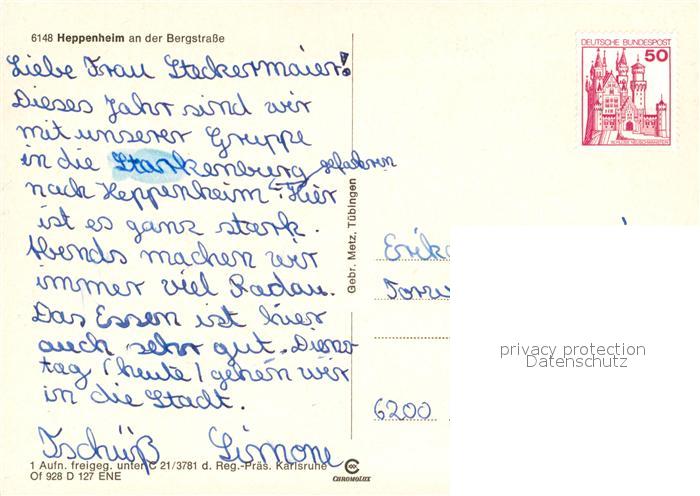 6148 Heppenheim an der Bergstraße
Liebe Frau Steckermaier!
Dieses Jahr sind wir
mit unserer Gruppe
in die Starkenburg gefahren
nach Heppenheim. Hier
ist es ganz stark.
Abends machen wir
immer viel Radau.
Das Essen ist hier
auch sehr gut. Diens
tag (heute) gehen wir
in die Stadt.
Tschüß Simone
1 Aufn. freigeg. unter C 21/3781 d. Reg.-Präs. Karlsruhe
Of 928 D 127 ENE
CHROMOLUX
Gebr. Metz, Tübingen
DEUTSCHE BUNDESPOST
50
SCHLOSS NEUSCHWANSTEIN
Erika
6200
privacy protection
Datenschutz